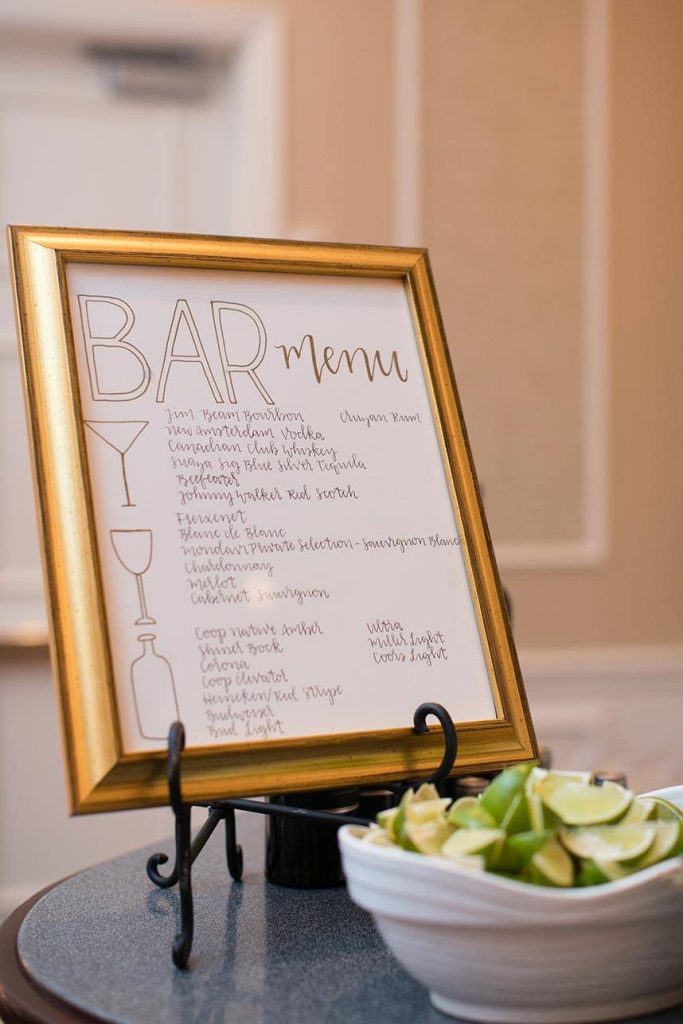 BAR menu
Jim Beam Bourbon
Cruzan Rum
New Amsterdam Vodka
Canadian Club Whiskey
Suaza Sig Blue Silver Tequila
Beefeater
Johnny Walker Red Scotch
Freixenet
Blanc de Blanc
Mondavi Private Selection - Sauvignon Blanc
Chardonnay
Merlot
Cabernet Sauvignon
Coop Native Amber
Shiner Bock
Corona
Coop Elevator
Heineken/Red Stripe
Budweiser
Bud Light
Ultra
Miller Light
Coors Light